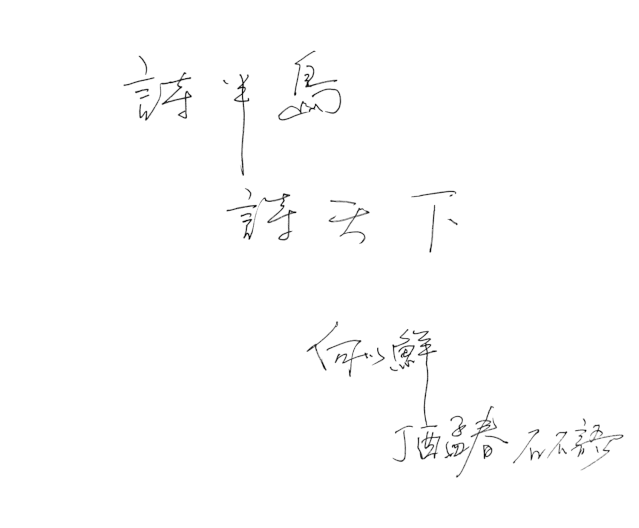 詩半島
詩天下
何以鮮
丁酉孟春 石不語